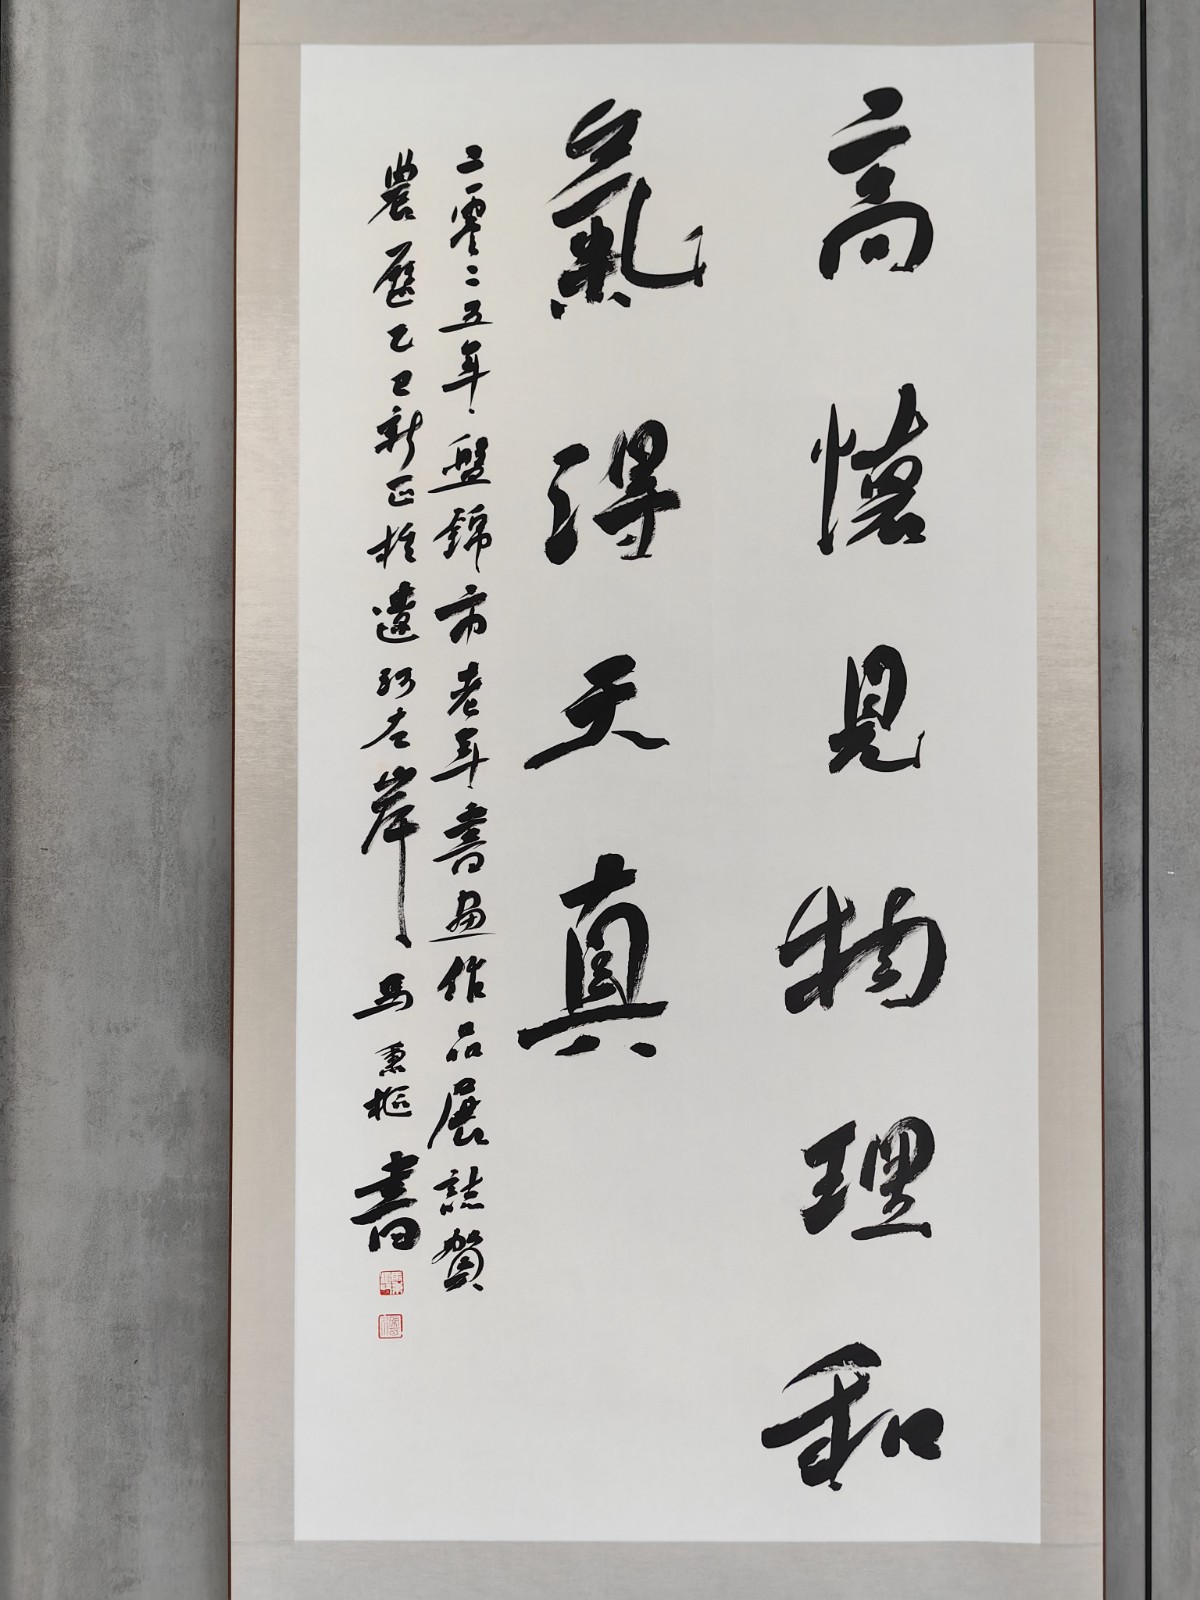 高懷見物理和
氣得天真
二零二五年盤錦市老年書畫作品展誌賀
農歷乙巳新正於遼河左岸馬秉樞書